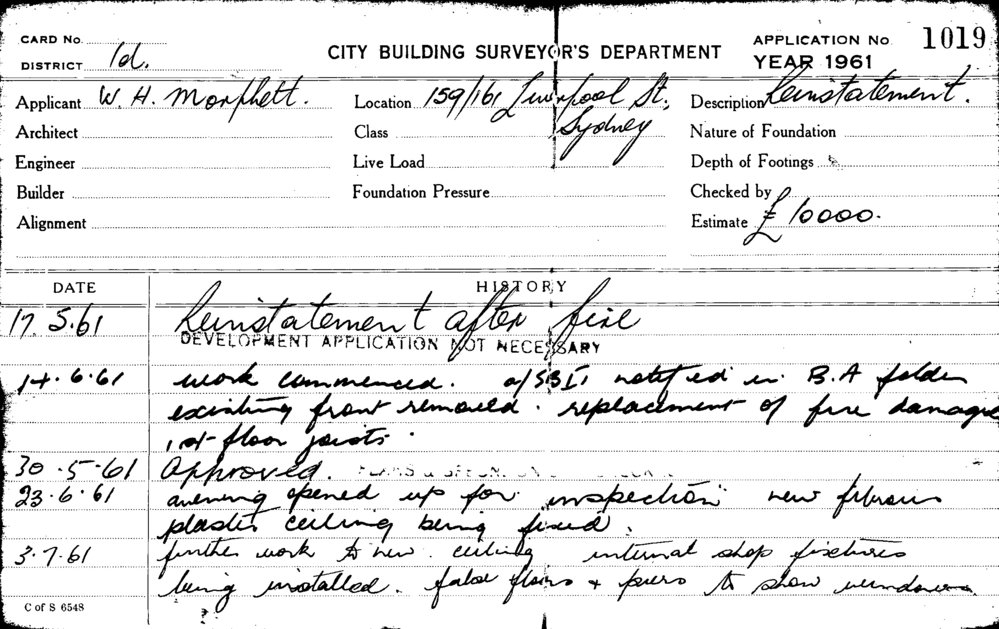 CARD No.
DISTRICT Id.
CITY BUILDING SURVEYOR'S DEPARTMENT
APPLICATION No. 1019
YEAR 1961
Applicant W. H. Morphett.
Location 159/161 Liverpool St, Sydney
Description Reinstatement.
Architect
Class
Nature of Foundation
Engineer
Live Load
Depth of Footings
Builder
Foundation Pressure
Checked by
Alignment
Estimate £10000.
DATE
HISTORY
17. 5.61 Reinstatement after fire
DEVELOPMENT APPLICATION NOT NECESSARY
14.6.61 work commenced. a/SBI, notified in B.A folder
existing front removed. replacement of fire damaged
1st floor joists.
30.5.61 Approved.
23.6.61 awning opened up for inspection new fibrous
plaster ceiling being fixed.
3.7.61 further work to new ceiling internal shop fixtures
being installed. false floors + piers to show windows.
C of S 6548